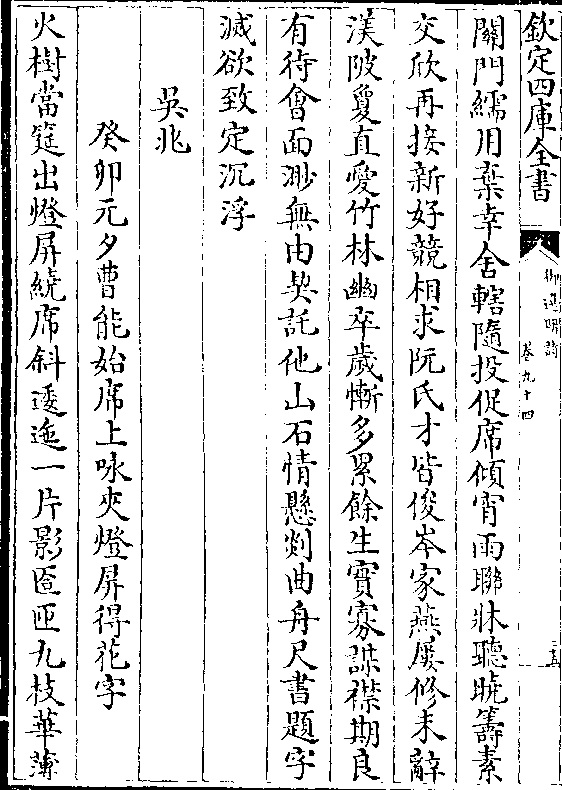 欽定四庫全書
御選明詩
卷九十四
關門繻用棄幸舍轄隨投促席傾宵雨聯牀聽曉籌素
交欣再接新好競相求阮氏才皆俊岑家燕屢修未辭
渼陂夐直愛竹林幽卒歲慚多累餘生實寡謀襟期良
有待會面渺無由契託他山石情懸剡曲舟尺書題字
滅欲致定沉浮
吳兆
癸卯元夕曹能始席上咏夾燈屏得花字
火樹當筵出燈屏繞席斜逶迤一片影匼匝九枝華薄